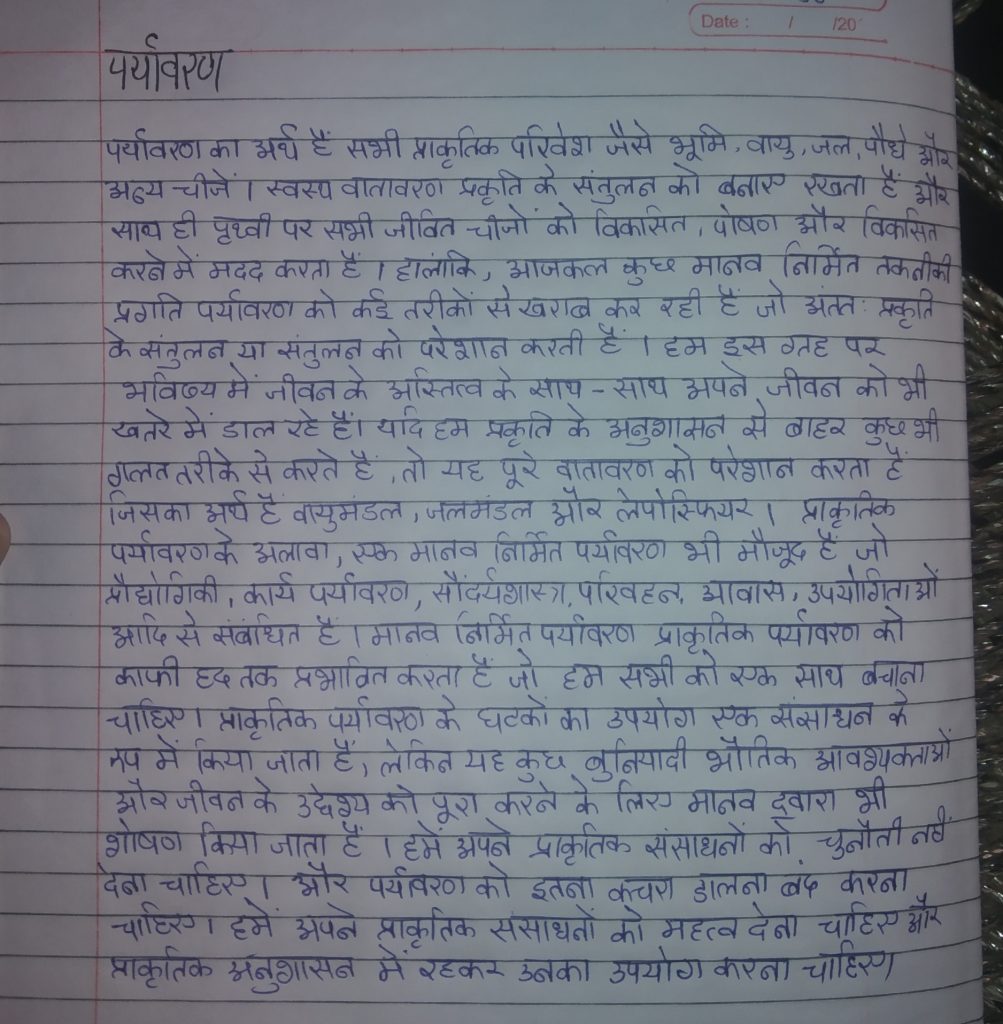 Date : / /20
पर्यावरण
पर्यावरण का अर्थ हैं सभी प्राकृतिक परिवेश जैसे भूमि, वायु, जल, पौधे और
अन्य चीजें । स्वस्प वातावरण प्रकृति के संतुलन को बनाए रखता हैं और
साथ ही पृथ्वी पर सभी जीवित चीजों को विकसित, पोषण और विकसित
करने में मदद करता हैं । हालांकि, आजकल कुछ मानव निर्मित तकनीकी
प्रगति पर्यावरण को कई तरीकों से खराब कर रही हैं जो अंतत: प्रकृति
के संतुलन या संतुलन को परेशान करती हैं । हम इस ग्रह पर
भविष्य में जीवन के अस्तित्व के साथ - साथ अपने जीवन को भी
खतरे में डाल रहे हैं। यदि हम प्रकृति के अनुशासन से बाहर कुछ भी
गलत तरीके से करते हैं, तो यह पूरे वातावरण को परेशान करता हैं
जिसका अर्थ हैं वायुमंडल, जलमंडल और लेपोस्फियर । प्राकृतिक
पर्यावरण के अलावा, एक मानव निर्मित पर्यावरण भी मौजूद हैं जो
प्रौद्योगिकी, कार्य पर्यावरण, सौंदर्यशास्त्र, परिवहन, आवास, उपयोगिताओं
आदि से संबंधित हैं । मानव निर्मित पर्यावरण प्राकृतिक पर्यावरण को
काफी हद तक प्रभावित करता हैं जो हम सभी को एक साथ बचाना
चाहिए। प्राकृतिक पर्यावरण के घटकों का उपयोग एक संसाधन के
रूप में किया जाता हैं, लेकिन यह कुछ बुनियादी भौतिक आवश्यकताओं
और जीवन के उद्देश्य को पूरा करने के लिए मानव द्वारा भी
शोषण किया जाता हैं । हमें अपने प्राकृतिक संसाधनों को चुनौती नहीं
देना चाहिए। और पर्यावरण को इतना कचरा डालना बंद करना
चाहिए। हमें अपने प्राकृतिक संसाधनों को महत्व देना चाहिए और
प्राकृतिक अनुशासन में रहकर उनका उपयोग करना चाहिए।